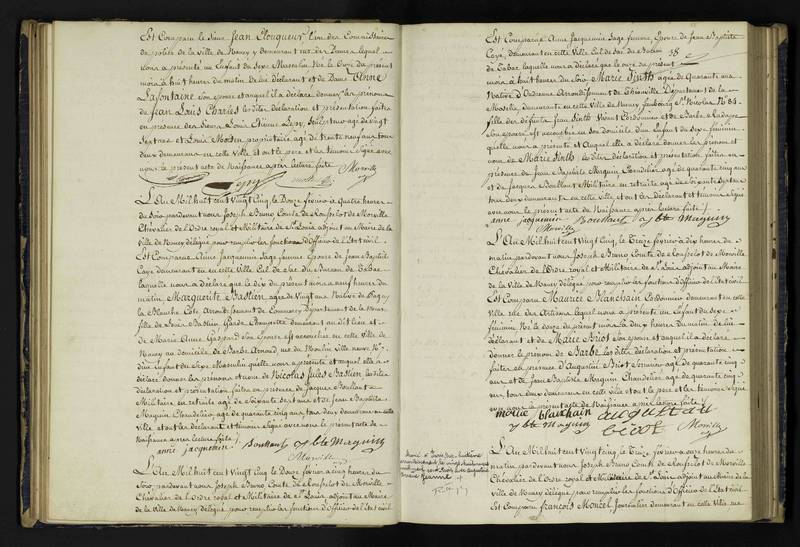 Est Comparu le Sieur Jean Clouqueur l'un des Commissaires
de police de la Ville de Nancy y demeurant rue des Dames lequel
nous a présenté un Enfant du Sexe Masculin Né le Onze du présent
mois à huit heures du matin de lui déclarant et de Dame Anne
Lafontaine son épouse et auquel il a déclaré donner les prénoms
de Jean Louis Charles les dites déclaration et présentation faites
en présence des Sieurs Louis Etienne Lepy, Sculpteur agé de vingt
Sept ans et Louis propriétaire agé de trente neuf ans tous
deux demeurant en cette Ville et ont le père et les témoins signé avec
nous le présent acte de Naissance après lecture faite Morville
L'An Mil huit cent Vingt Cinq, le Douze février à quatre heures
du Soir pardevant nous Joseph Bruno Comte de Rousselot de Morville
Chevalier de l'Ordre royal et Militaire de St Louis adjoint au Maire de la
Ville de Nancy délégué pour remplir les fonctions d'Officier de l'Etat Civil
Est Comparue Anne Jacquemin Sage femme Epouse de Jean Baptiste
Cayé demeurant en cette Ville Cul de Sac du Bureau de Tabac
laquelle nous a déclaré que le dix du présent mois à neuf heures du
matin, Marguerite Bastien, agée de vingt ans Native de Pagny
la Blanche Côte Arrondissement de Commercy Département de la Meuse
fille de Bastien Garde Champêtre demeurant au dit lieu et
de Marie Anne son épouse est accouchée en cette Ville de
Nancy au domicile de Barbe Arnoud, rue du Moulin Ville neuve No
d'un Enfant du Sexe Masculin qu'elle nous a présenté et auquel elle a
déclaré donner les prénoms et nom de Nicolas Jules Bastien les dites
déclaration et présentation faites en présence de Jacques Bouillant
Militaire en retraite agé de Soixante Sept ans et de Jean Baptiste
Maguin Chandelier, agé de quarante cinq ans, tous deux demeurant en cette
Ville et ont la déclarant et témoins signé avec nous le présent acte de
Naissance après lecture faite
anne jacquemin Bouillant J bte Maguin
Morville
L'An Mil huit cent Vingt Cinq le Douze février à cinq heures du
Soir, pardevant nous Joseph Bruno Comte de Rousselot de Morville
Chevalier de l'Ordre royal et Militaire de St Louis, adjoint au Maire
de la Ville de Nancy délégué pour remplir les fonctions d'Officier de l'Etat Civil
Est Comparue Anne Jacquemin Sage femme, Epouse de Jean Baptiste
Cayé, demeurant en cette Ville Cul de Sac du Bureau 38
de Tabac laquelle nous a déclaré que le onze du présent
mois à huit heures du Soir Marie Sinth agée de Quarante ans
Native d' Arrondissement de Thionville Département de la
Moselle demeurante en cette Ville de Nancy faubourg St Nicolas No 84.
fille des défunts Jean Sinth Vivant Cordonnier et de Barbe
son épouse est accouchée en son domicile d'un Enfant du Sexe féminin
qu'elle nous a présenté et Auquel elle a déclaré donner les prénom et
nom de Marie Sinth les dites déclaration et présentation faites en
présence de Jean Baptiste Maguin Chandelier agé de quarante cinq ans
et de Jacques Bouillant Militaire en retraite agé de Soixante Sept ans
tous deux demeurant en cette Ville et ont la déclarant et témoins signé
avec nous le présent acte de Naissance après lecture faite
anne jacquemin Bouillant J bte Maguin
Morville
L'An Mil huit cent Vingt Cinq, le Treize février à dix heures du
matin, pardevant nous Joseph Bruno Comte de Rousselot de Morville
Chevalier de l'Ordre royal et Militaire de St Louis adjoint au Maire
de la Ville de Nancy délégué pour remplir les fonctions d'Officier de l'Etat Civil
Est Comparu Maurice Blanchain Cordonnier demeurant en cette
Ville rue des Artisans lequel nous a présenté un Enfant du Sexe
féminin Né le douze du présent mois à deux heures du matin de lui
déclarant et de Marie Briot son épouse et auquel il a déclaré
donner le prénom de Barbe les dites déclaration et présentation
faites en présence de Augustin Briot Serrurier agé de quarante cinq
ans et de Jean Baptiste Maguin Chandelier agé de quarante cinq
ans, tous deux demeurant en cette Ville et ont le père et les témoins signé
avec nous le présent acte de Naissance après lecture faite
morice blanchain augustin
J bte Maguin briot Morville
L'An Mil huit cent Vingt Cinq, le Treize février à onze heures du
matin pardevant nous Joseph Bruno Comte de Rousselot de Morville
Chevalier de l'Ordre royal et Militaire de St Louis adjoint au Maire de la
Ville de Nancy délégué pour remplir les fonctions d'Officier de l'Etat Civil
Est Comparu François Moncel, Journalier demeurant en cette Ville rue